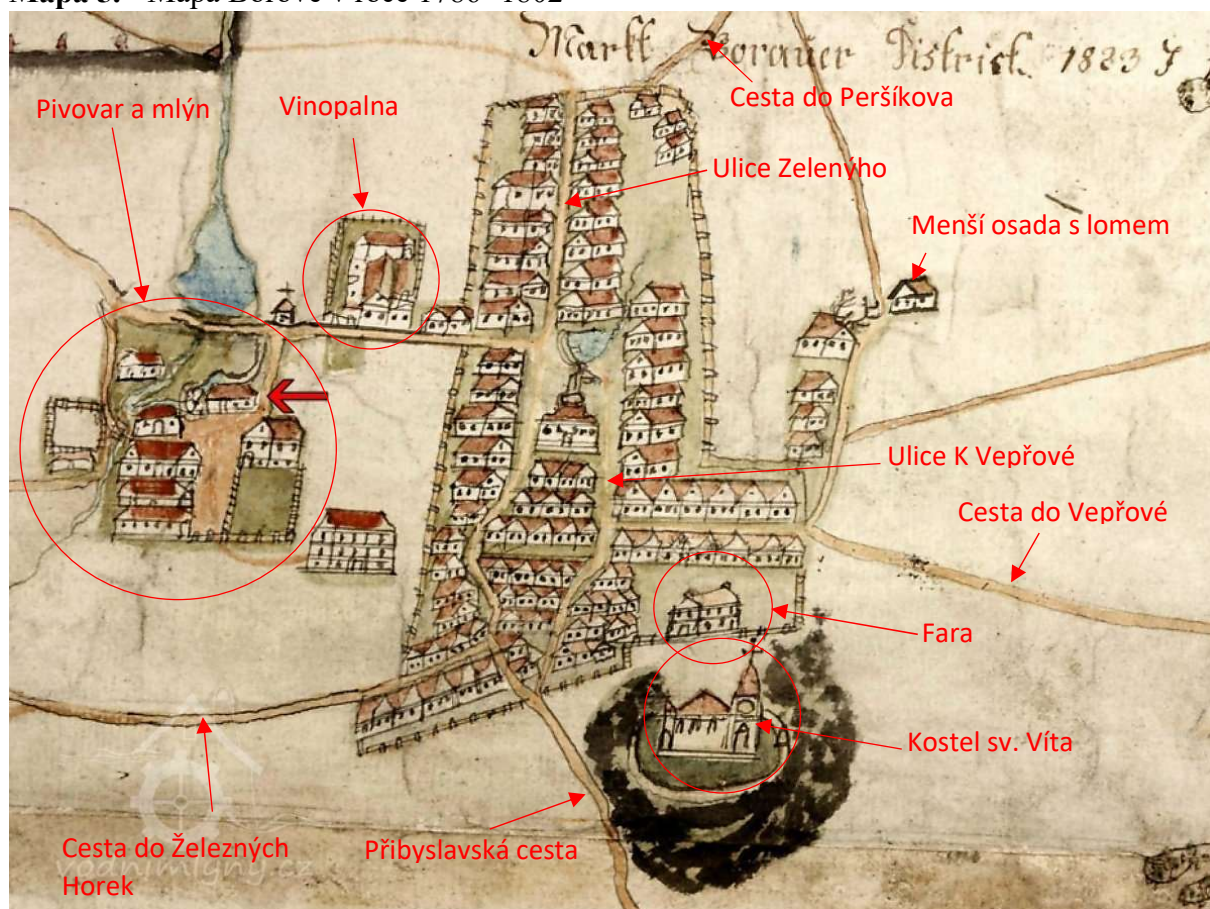 Mapa 3. Mapa Borové v roce 1780–1802
Markt Borauer District. 1823 J
Cesta do Peršíkova
Pivovar a mlýn
Vinopalna
Ulice Zelenýho
Menší osada s lomem
Ulice K Vepřové
Cesta do Vepřové
Fara
Kostel sv. Víta
Cesta do Železných
Horek
Přibyslavská cesta
vodnimlyny.cz